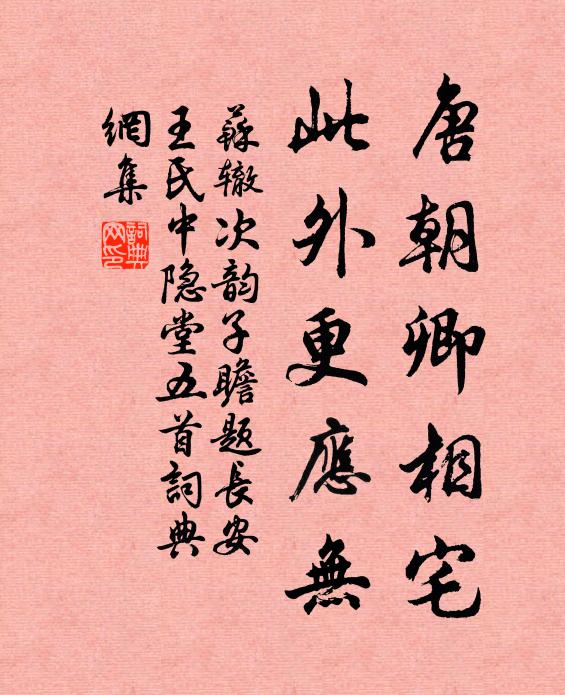 唐朝卿相宅
此外更應無
蘇辙次韵子瞻題長安
王氏中隐堂五首詞典
網集
詞典
网印